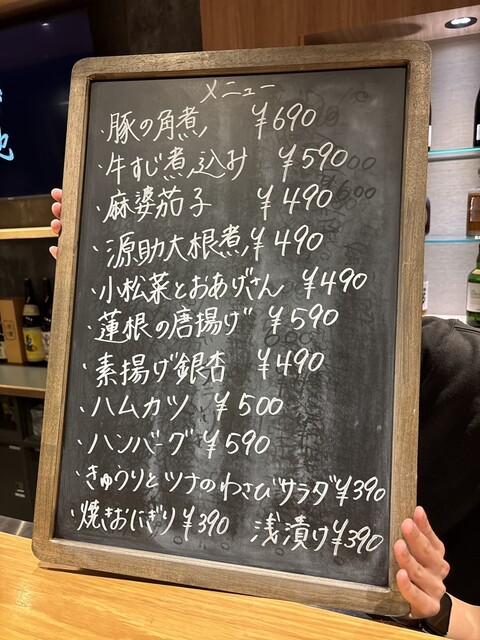 メニュー
・豚の角煮 ¥690
・牛すじ煮込み ¥590
・麻婆茄子 ¥490
・源助大根煮 ¥490
・小松菜とおあげさん ¥490
・蓮根の唐揚げ ¥590
・素揚げ銀杏 ¥490
・ハムカツ ¥500
・ハンバーグ ¥590
・きゅうりとツナのわさびサラダ ¥390
・焼きおにぎり ¥390 浅漬け ¥390